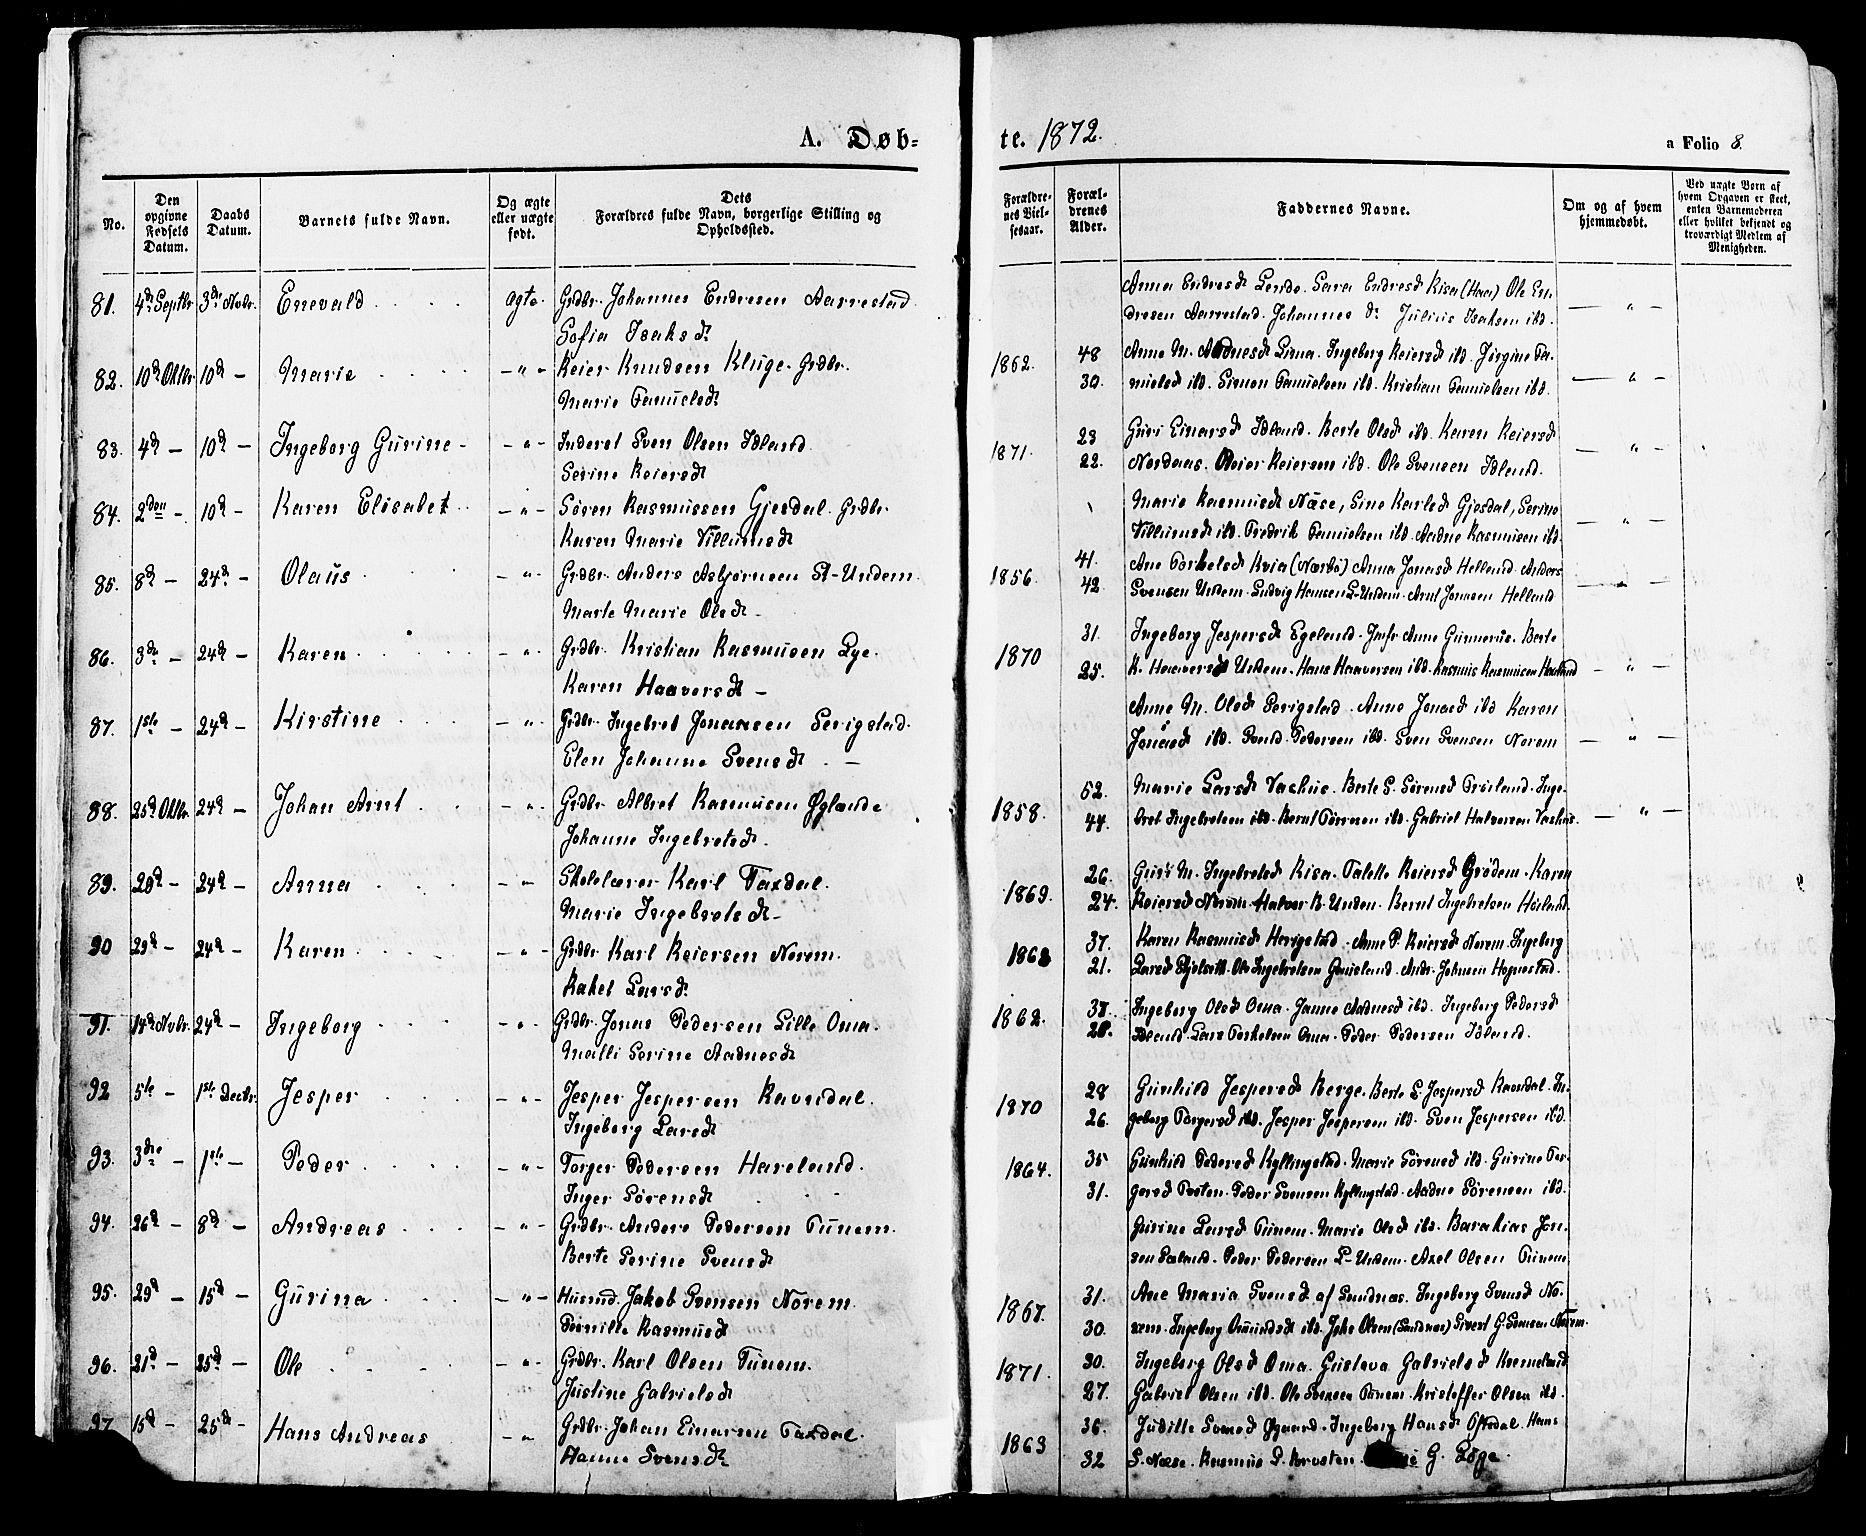 A. Døb-
te. 1872.
a Folio 8.
No.
Den opgivne Fødsels Datum.
Daabs Datum.
Barnets fulde Navn.
Og ægte eller uægte født.
Dets Forældres fulde Navn, borgerlige Stilling og Opholdssted.
Forældrenes Vielsesaar.
Forældrenes Alder.
Faddernes Navne.
Om og af hvem hjemmedøbt.
Ved uægte Børn af hvem Opgaven er skeet, enten Barnemoderen eller hvilket bekjendt og troværdigt Medlem af Menigheden.
81. 4de Septbr 3de Novbr. Enevald Ægte. Grdbr. Johannes Endresen Aarrestad
Sofia Isaksdt
Anna Endresd Lende. Sara Endresd Risa (Haa) Ole En-
dresen Aarrestad. Johannes Julius Isaksen ibd.
82. 10d Oktbr 10d — Marie — " — Reier Knudsen Kluge. Grdbr.
Marie Tamuelsdt
1862. 48 30. Anne M. Aadnesd Lima. Ingeborg Reiersd ibd. Jørgine Ta-
mielsd ibd. Simon Tamielsen ibd. Kristian Tamielsen ibd.
83. 4d — 10d — Ingeborg Gurine — " — Inderst Sven Olsen Idland.
Serine Reiersdt
1871. 23 22. Guri Einarsd Idland. Berte Olsd ibd. Karen Reiersd
Nordaas. Reier Reiersen ibd. Ole Svensen Idland.
84. 2den — 10d — Karen Elisabet — " — Sören Rasmussen Gjesdal. Grdbr.
Karen Marie Villumsdt
Marie Rasmusd Næse, Sine Karlsd Gjesdal, Serine
Villumsd ibd. Fredrik Tamielsen ibd. Aadne Rasmusen ibd.
85. 8d — 24d — Olaüs — " — Grdbr. Anders Asbjørnsen L-Undem
Marte Marie Olsdt —
1856. 41. 42. Ane Torkelsd Kvia (Nærbö) Anna Jonasd Helland. Anders
Svensen Undem. Ludvig Hansen L-Undem. Arnt Jonasen Helland
86. 3de — 24d — Karen — " — Grdbr. Kristian Rasmusen Lye.
Karen Haaversdt —
1870 31. 25. Ingeborg Jespersd Egeland. Jmfr Anne Gunnerus. Berte
K. Haaversd Undem. Hans Haaversen ibd. Rasmus Rasmusen Haaland
87. 1ste — 24d — Kirstine — " — Grdbr. Ingebret Jonassen Serigstad.
Elen Johanne Svensdt
Anne M. Olsd Serigstad. Anne Jonasd ibd Karen
Jonasd ibd. Svend Pedersen ibd. Sven Svensen Norem
88. 25d Oktbr. 24d — Johan Arnt — " — Grdbr Albret Rasmusen Øglænde
Johanne Ingebretsdt.
1858. 52. 44. Marie Larsd Vashus. Berte S. Sörensd Fröiland. Inge-
bret Ingebretsen ibd. Bernt Törresen ibd. Gabriel Halvorsen Vashus.
89. 20d — 24d — Anna — " — Skolelærer Karl Taxdal.
Marie Ingebretsdt —
1869. 26. 24. Guri M. Ingebretsd Risa. Talette Reiersd Grødem. Karen
Reiersd Norem. Halvor B. Unden. Bernt Ingebretsen Høiland.
90 29d — 24d — Karen — " — Grdbr Karl Reiersen Norem.
Rakel Larsdt
1868 37. 21. Karen Rasmusd Herigstad. Anne P. Reiersd Norem. Ingeborg
Larsd. Ole Ingebretsen. Andr. Johnsen Hognestad.
91. 14d Nvbr. 24d — Ingeborg — " — Grdbr. Jonas Pedersen Lille Oma.
Malli Serine Aadnesdt
1862. 37. 28. Ingeborg Olsd Oma. Janne Aadnesd ibd. Ingeborg Pedersd
Idland. Lars Torkelsen Oma. Peder Pedersen Idland.
92 5te — 1ste Decbr. Jesper — " — Jesper Jespersen Ravndal.
Ingeborg Larsdt
1870 28 26. Gunhild Jespersd Berge. Berte S. Jespersd Ravndal. In-
geborg Torgersd ibd. Jesper Jespersen ibd. Sven Jespersen ibd.
93. 3die — 1ste — Peder — " — Torger Pedersen Hareland.
Inger Sörensdt
1864. 35 31. Gunhild Pedersd Kyllingstad. Marie Sörensd ibd. Gurine Tor-
gersd Tveten. Peder Svensen Kyllingstad. Aadne Sörensen ibd.
94. 26d — 8d — Andreas — " — Grdbr. Anders Pedersen Tünem.
Berte Serine Svensdt
Gurine Larsd Tünem. Marie Olsd ibd. Barakias Jon-
sen Sæland. Peder Pedersen L-Undem. Axel Olsen Tünem
95. 29d — 15d — Gürina — " — Husmd. Jakob Svensen Norem.
Pernille Rasmusdt
1867. 31. 30. Ane Maria Svensd af Sandnæs. Ingeborg Svensd No-
rem. Ingeborg Omundsdt ibd. John Olsen (Sandnæs) Sivert G. Svensen Norem.
96. 21d — 25d — Ole — " — Grdbr. Karl Olsen Tünem.
Justine Gabrielsd
1871. 30. 27. Ingeborg Olsd Oma. Gustava Gabrielsd
Gabriel Olsen ibd. Ole Svensen Tünem. Kristoffer Olsen ibd.
97. 15d — 25d — Hans Andreas — " — Grdbr. Johan Einarsen Taxdal.
Hanne Svensdt
1863 36. 32 Judille Svensd. Ingeborg Hansd Oftedal. Hans
S. Næse. Rasmus G. Løge.